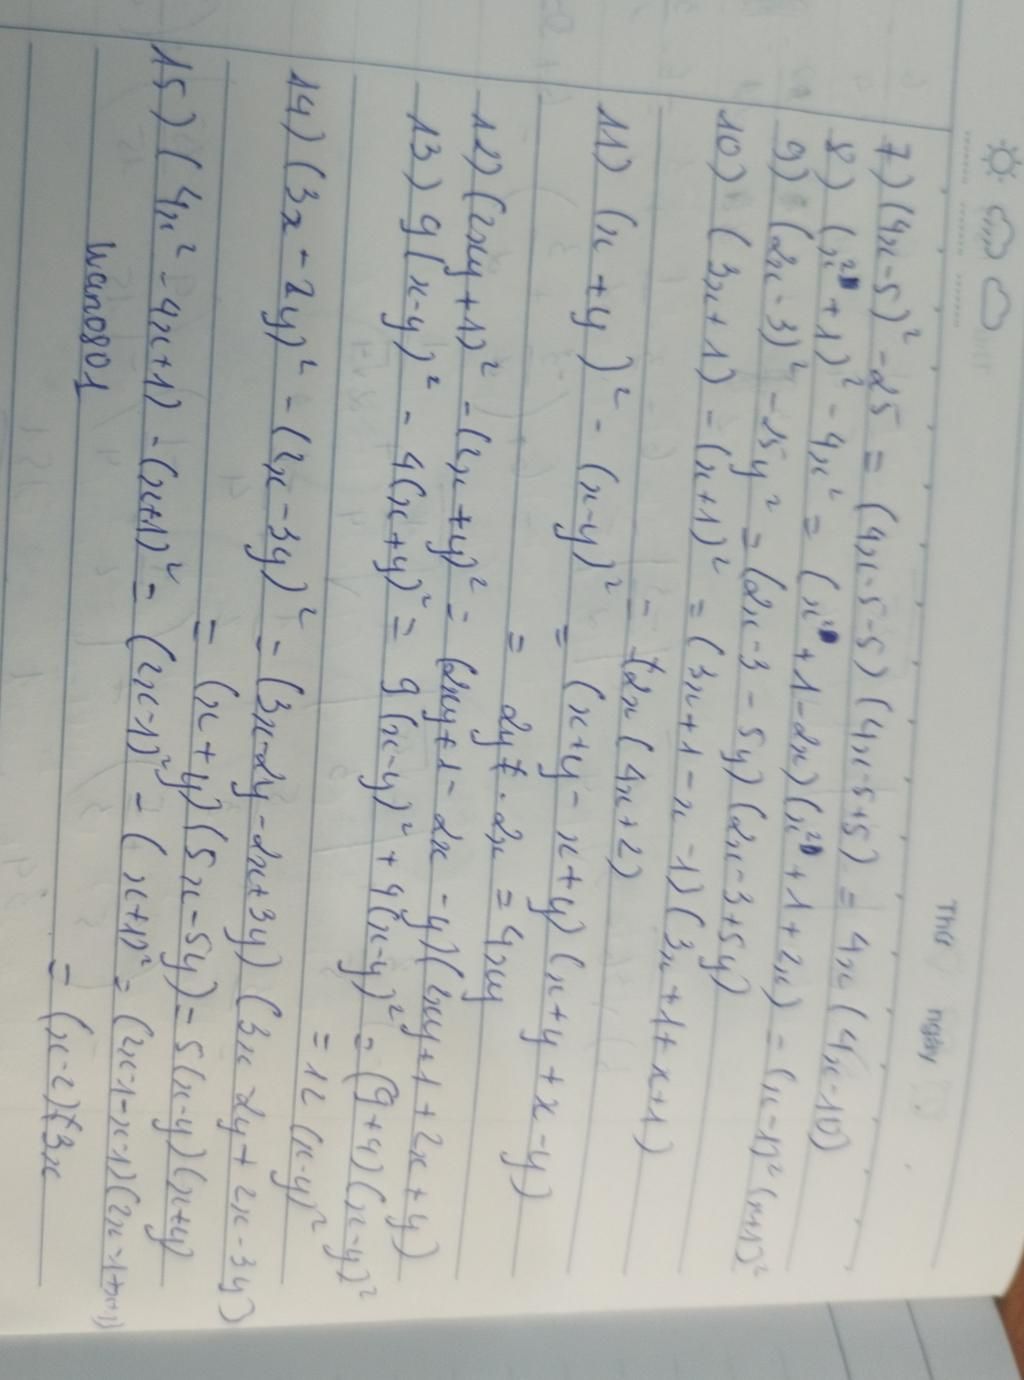 Thứ ngày
7) (4x-5)² - 25 = (4x-5-5)(4x-5+5) = 4x(4x-10)
8) (x²+1)² - 4x² = (x²+1-2x)(x²+1+2x) = (x-1)²(x+1)²
9) (2x-3)² - 25y² = (2x-3-5y)(2x-3+5y)
10) (3x+1) - (x+1)² = (3x+1-x-1)(3x+1+x+1)
= 2x(4x+2)
11) (x+y)² - (x-y)² = (x+y-x+y)(x+y+x-y)
= 2y . 2x = 4xy
12) (2xy+1)² - (2x+y)² = (2xy+1-2x-y)(2xy+1+2x+y)
13) 9(x-y)² - 4(x+y)² = 9(x-y)² + 4(x-y)² = (9+4)(x-y)²
= 12(x-y)²
14) (3x-2y)² - (2x-3y)² = (3x-2y-2x+3y)(3x-2y+2x-3y)
= (x+y)(5x-5y) = 5(x-y)(x+y)
15) (4x²-4x+1) - (x+1)² = (2x-1)² - (x+1)² = (2x-1-x-1)(2x-1+x+1)
wano801 = (x-2)3x